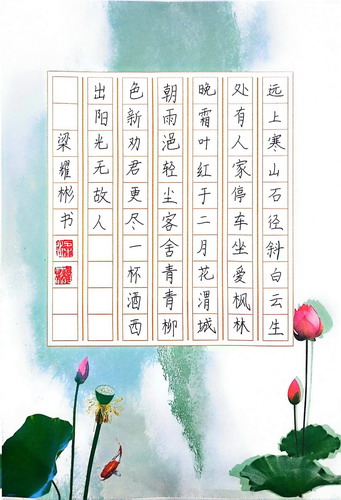 远上寒山石径斜白云生
处有人家停车坐爱枫林
晚霜叶红于二月花渭城
朝雨浥轻尘客舍青青柳
色新劝君更尽一杯酒西
出阳光无故人
梁耀彬书